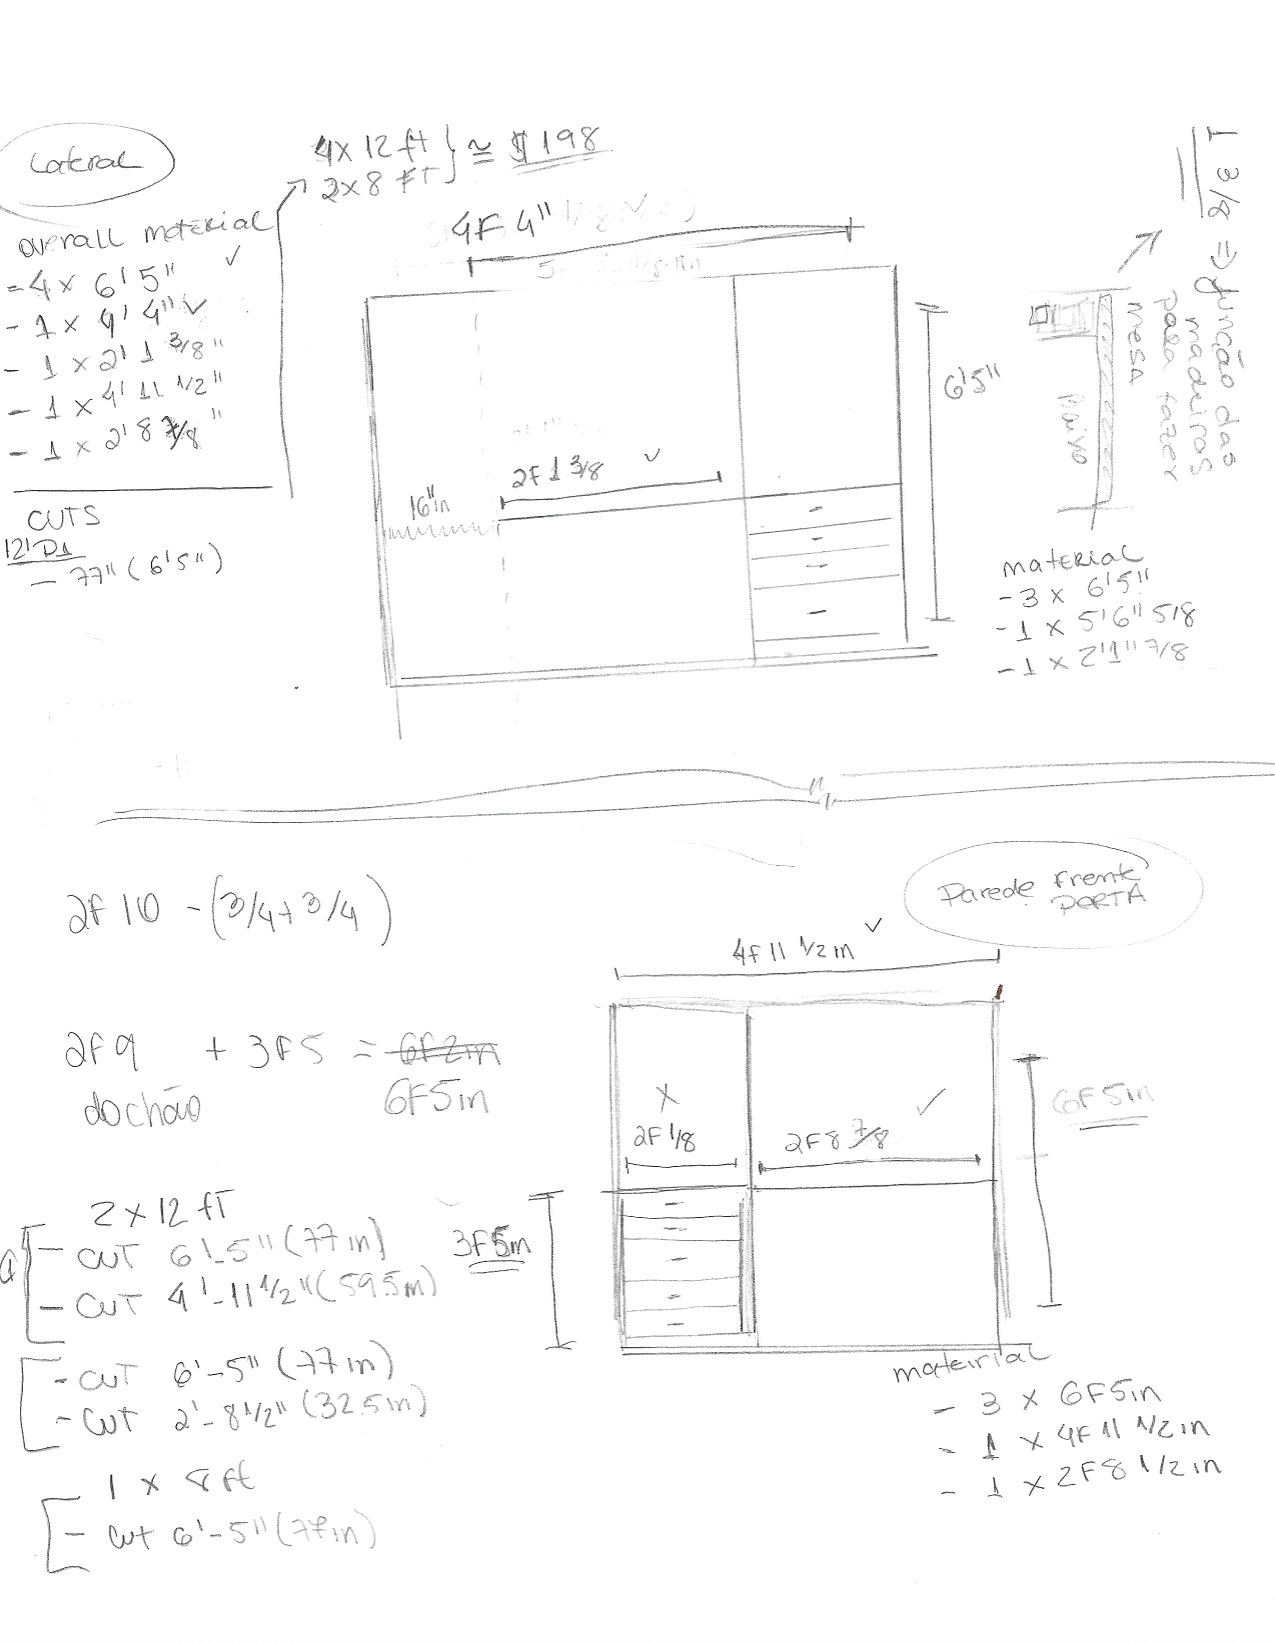 Lateral
4x 12 ft
2x8 FT
≅ $198
overall material
- 4 x 6'5" ✓
- 1 x 4' 4" ✓
- 1 x 2' 1 3/8"
- 1 x 4' 11 1/2"
- 1 x 2' 8 7/8"
CUTS
- 77" (6'5")
4F 4" ✓
2F 1 3/8 ✓
16"in
6'5"
1 3/8 => junção das
madeiras
para fazer
mesa
material
- 3 x 6'5"
- 1 x 5'6" 5/8
- 1 x 2'1" 7/8
2F 10 - (3/4+3/4)
Parede frente
PORTA
4F 11 1/2 in ✓
2F9 + 3F5 = 6F2in
do chão 6F5in
X
2F 1/8
✓
2F 8 7/8
6F 5in
3F5in
2 x 12 fT
- CUT 6'-5" (77 in)
- CUT 4'-11 1/2" (59.5in)
- CUT 6'-5" (77 in)
- CUT 2'-8 1/2" (32.5in)
1 x 8 ft
- Cut 6'-5" (77in)
mateirial
- 3 x 6F5in
- 1 x 4F 11 1/2 in
- 1 x 2F8 1/2 in